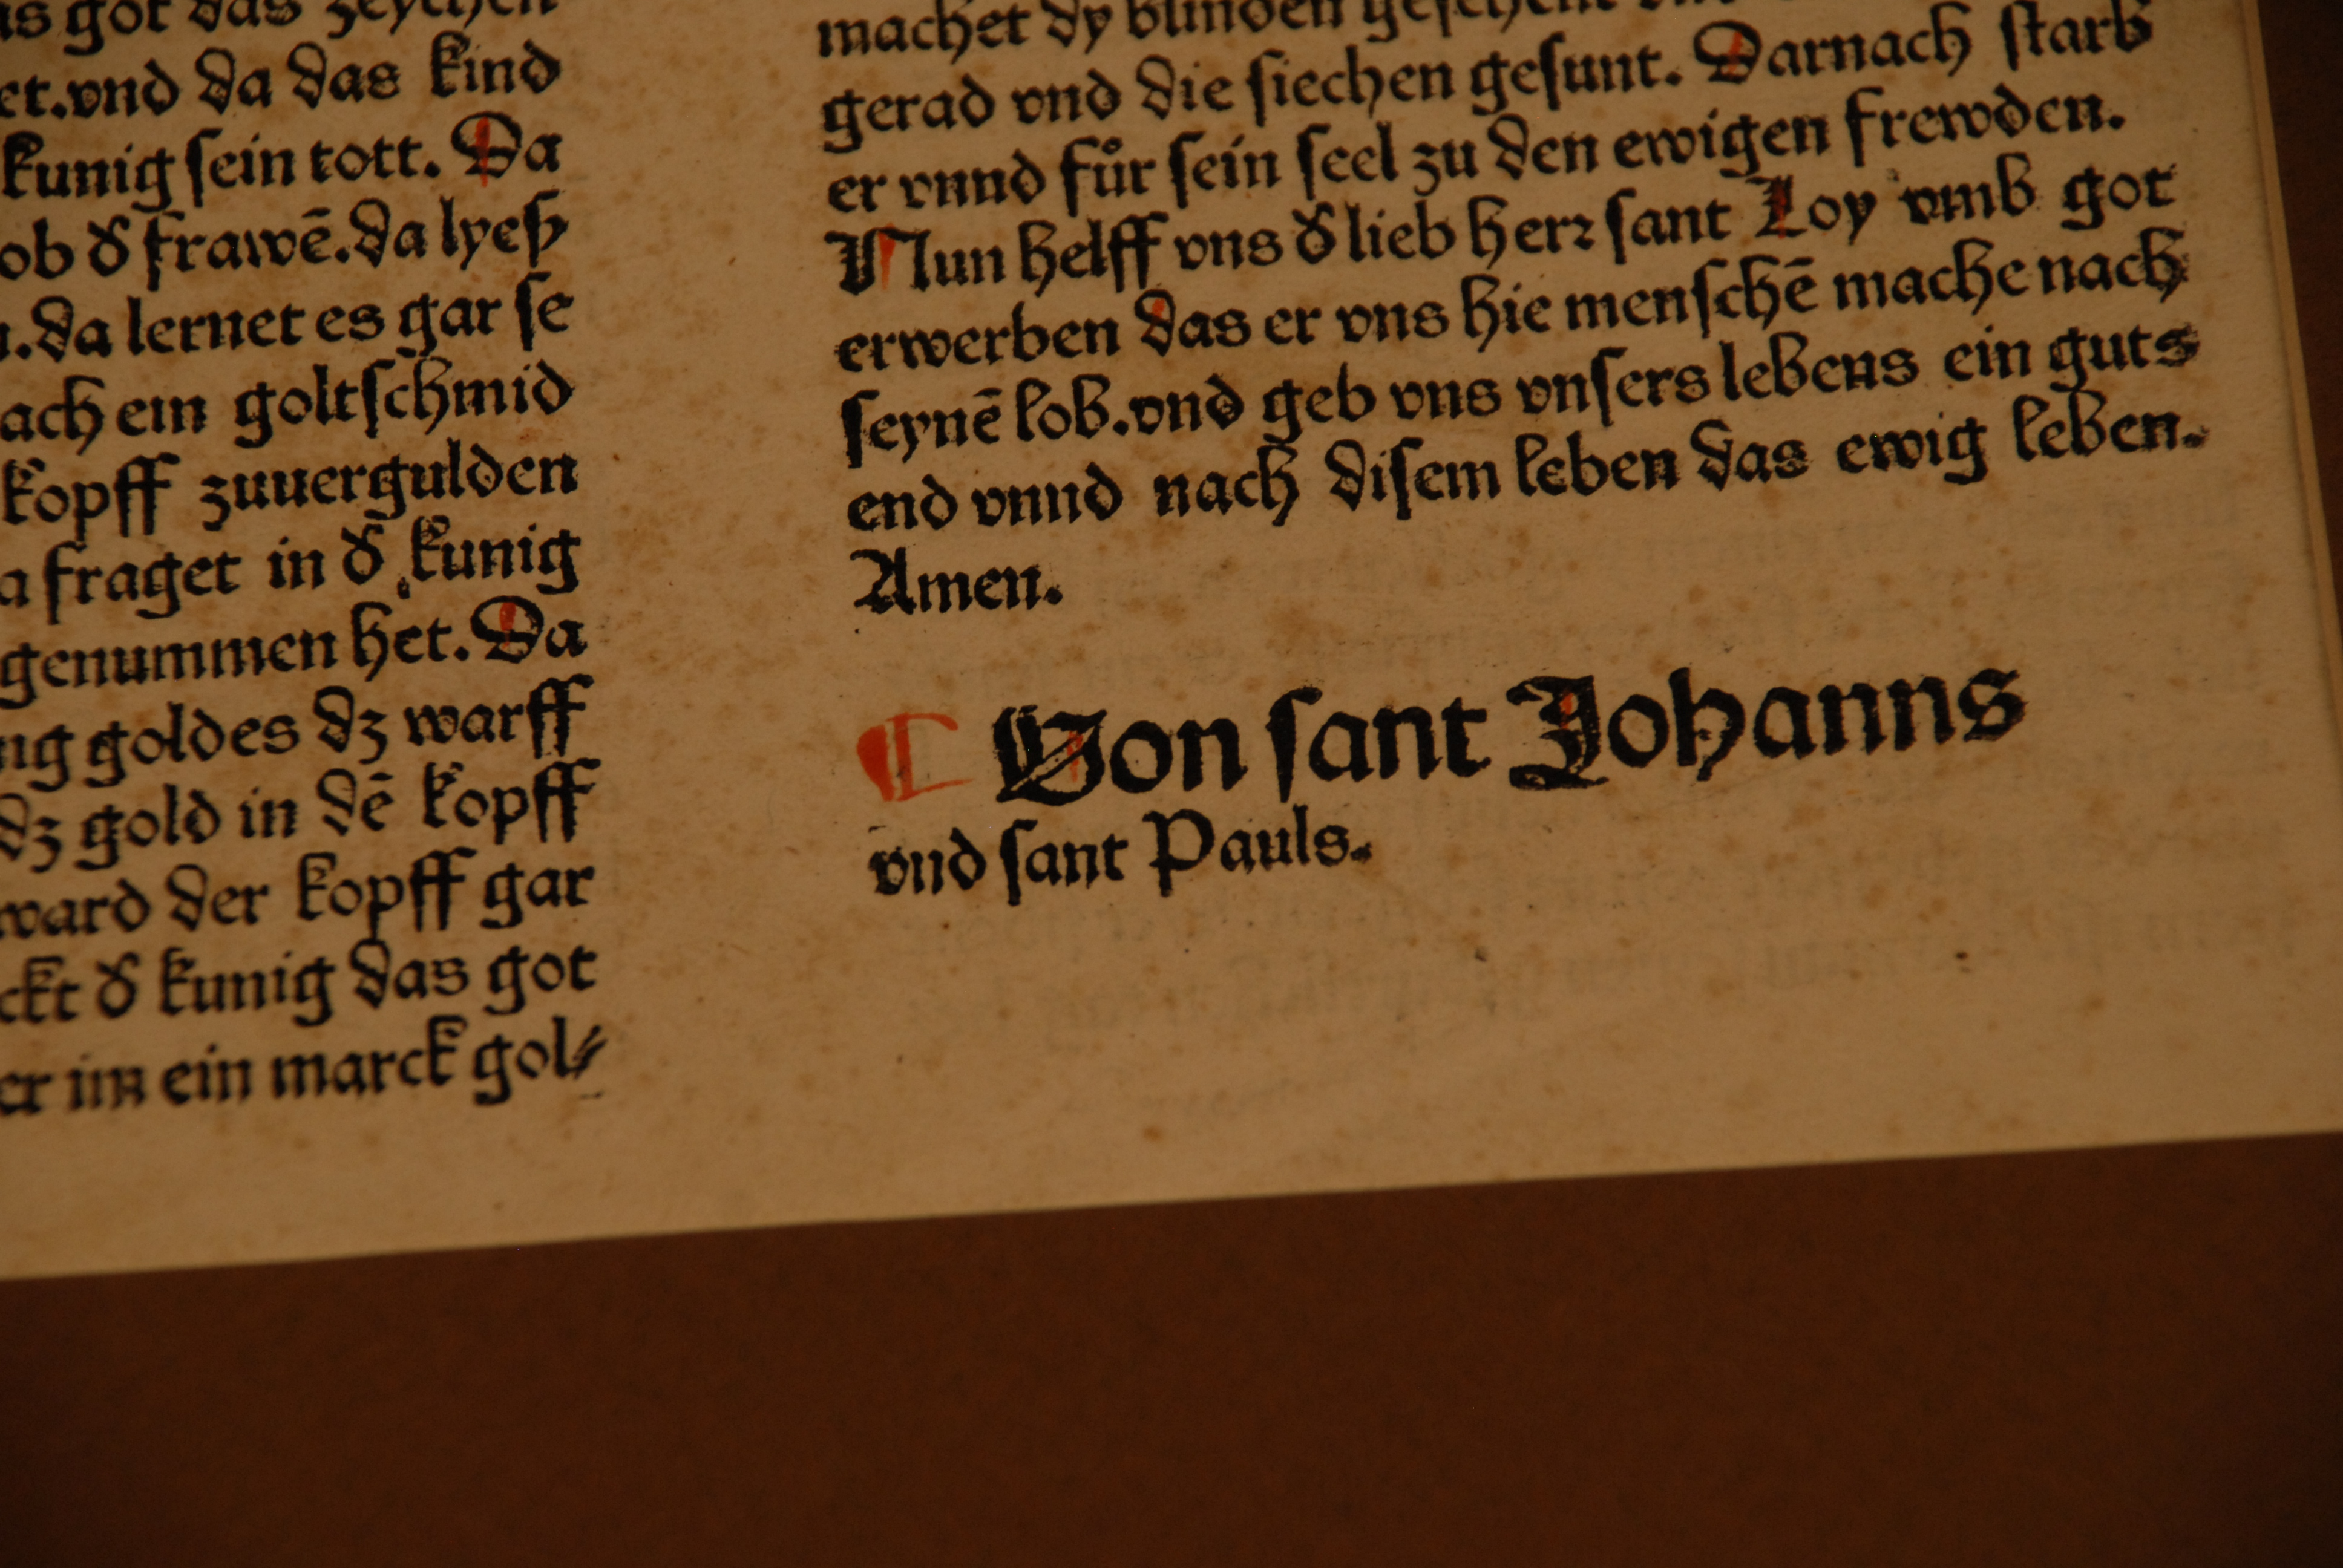 got das zeychen
et.vnd da das kind
kunig ſein tott. Da
ob d̕ frawē.da lyeſz
.da lernet es gar ſe
ach ein goltſchmid
kopff zuuergulden
a fraget in d̕ kunig
genummen het. Da
ng goldes dz warff
dz gold in dē kopff
ward der kopff gar
ckt d̕ kunig das got
er im ein marck gol⸗
machet dy blinden
gerad vnd die ſiechen geſunt. Darnach ſtarb
er vnnd fuͦr ſein ſeel zu den ewigen frewden.
Nun helff vns d̕ lieb herꝛ ſant Loy vmb got
erwerben das er vns hie menſchē mache nach
ſeynē lob.vnd geb vns vnſers lebens ein guts
end vnnd nach diſem leben das ewig leben.
Amen.
¶ Von ſant Johanns
vnd ſant Pauls.